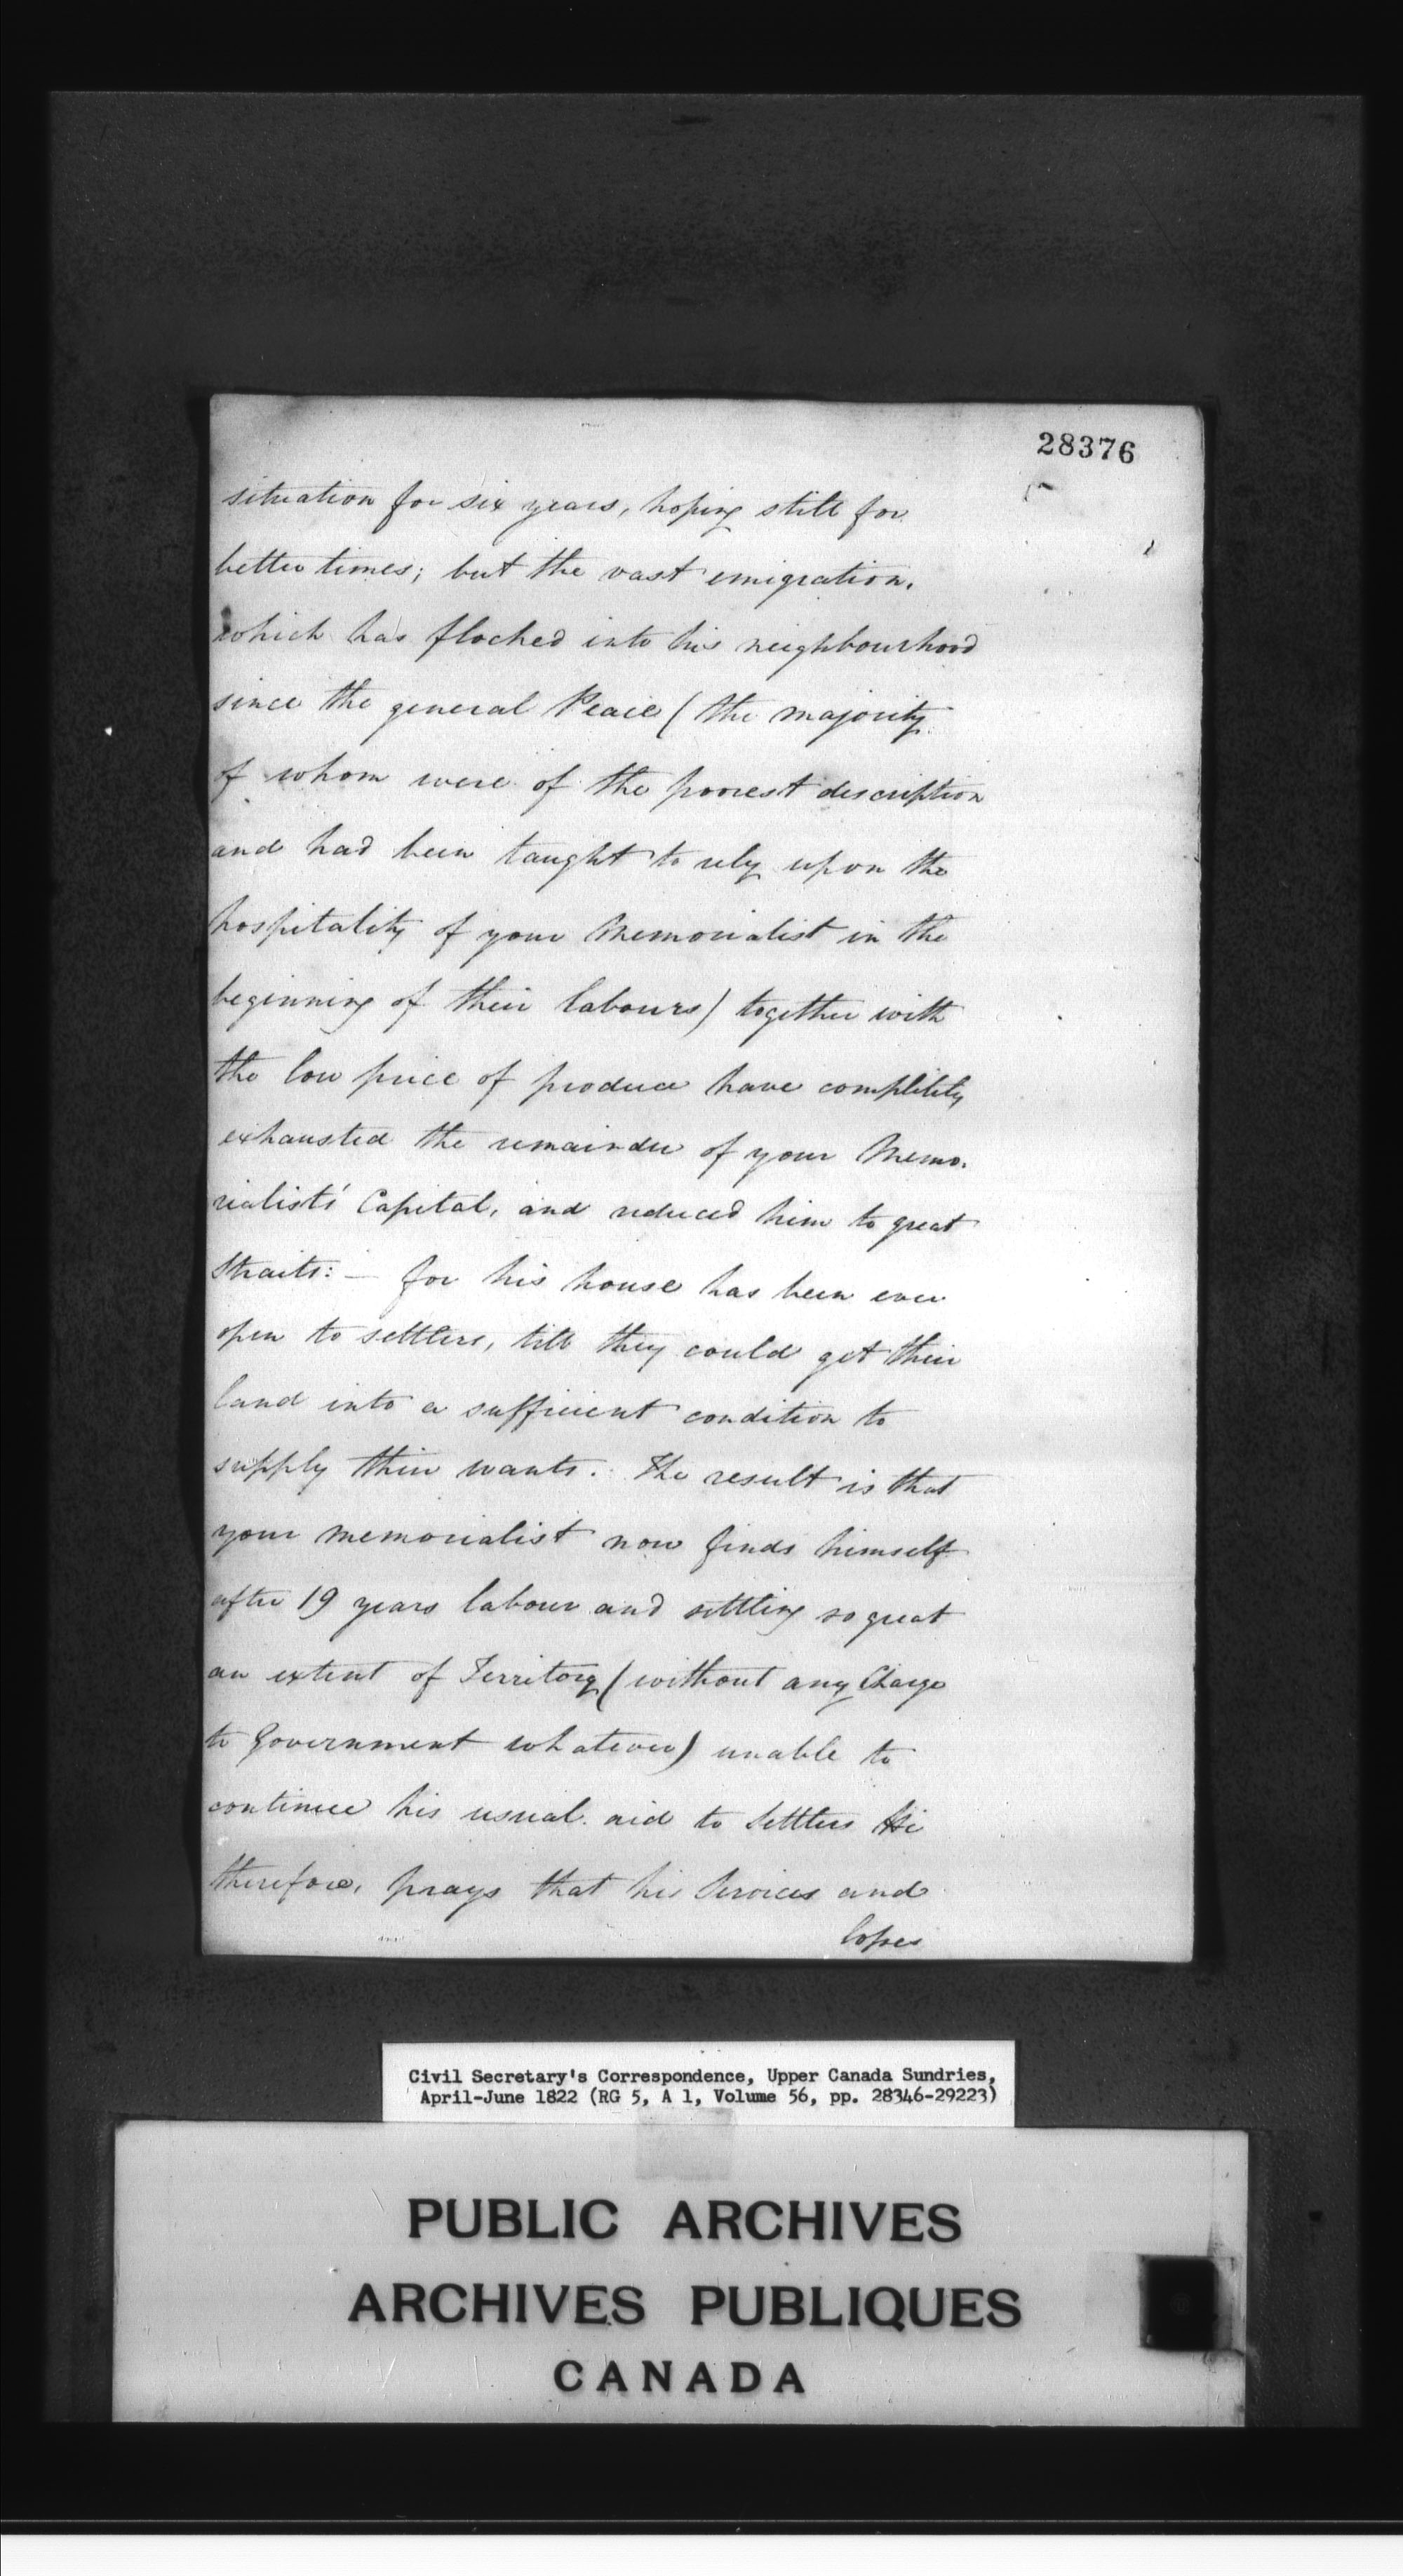 28376
situation for six years, hoping still for
better times; but the vast emigration,
which has flocked into his neighbourhood
since the general Peace (the majority
of whom were of the poorest description
and had been taught to rely upon the
hospitality of your Memorialist in the
beginning of their labours) together with
the low price of produce have completely
exhausted the remainder of your Memo-
rialists' Capital, and reduced him to great
Straits:— for his house has been ever
open to settlers, till they could get their
land into a sufficient condition to
supply their wants. The result is that
your memorialist now finds himself
after 19 years labour and settling so great
an extent of Territory (without any Charge
to Government whatever) unable to
continue his usual aid to Settlers He
therefore, prays that his Services and
losses
Civil Secretary's Correspondence, Upper Canada Sundries,
April-June 1822 (RG 5, A 1, Volume 56, pp. 28346-29223)
PUBLIC ARCHIVES
ARCHIVES PUBLIQUES
CANADA